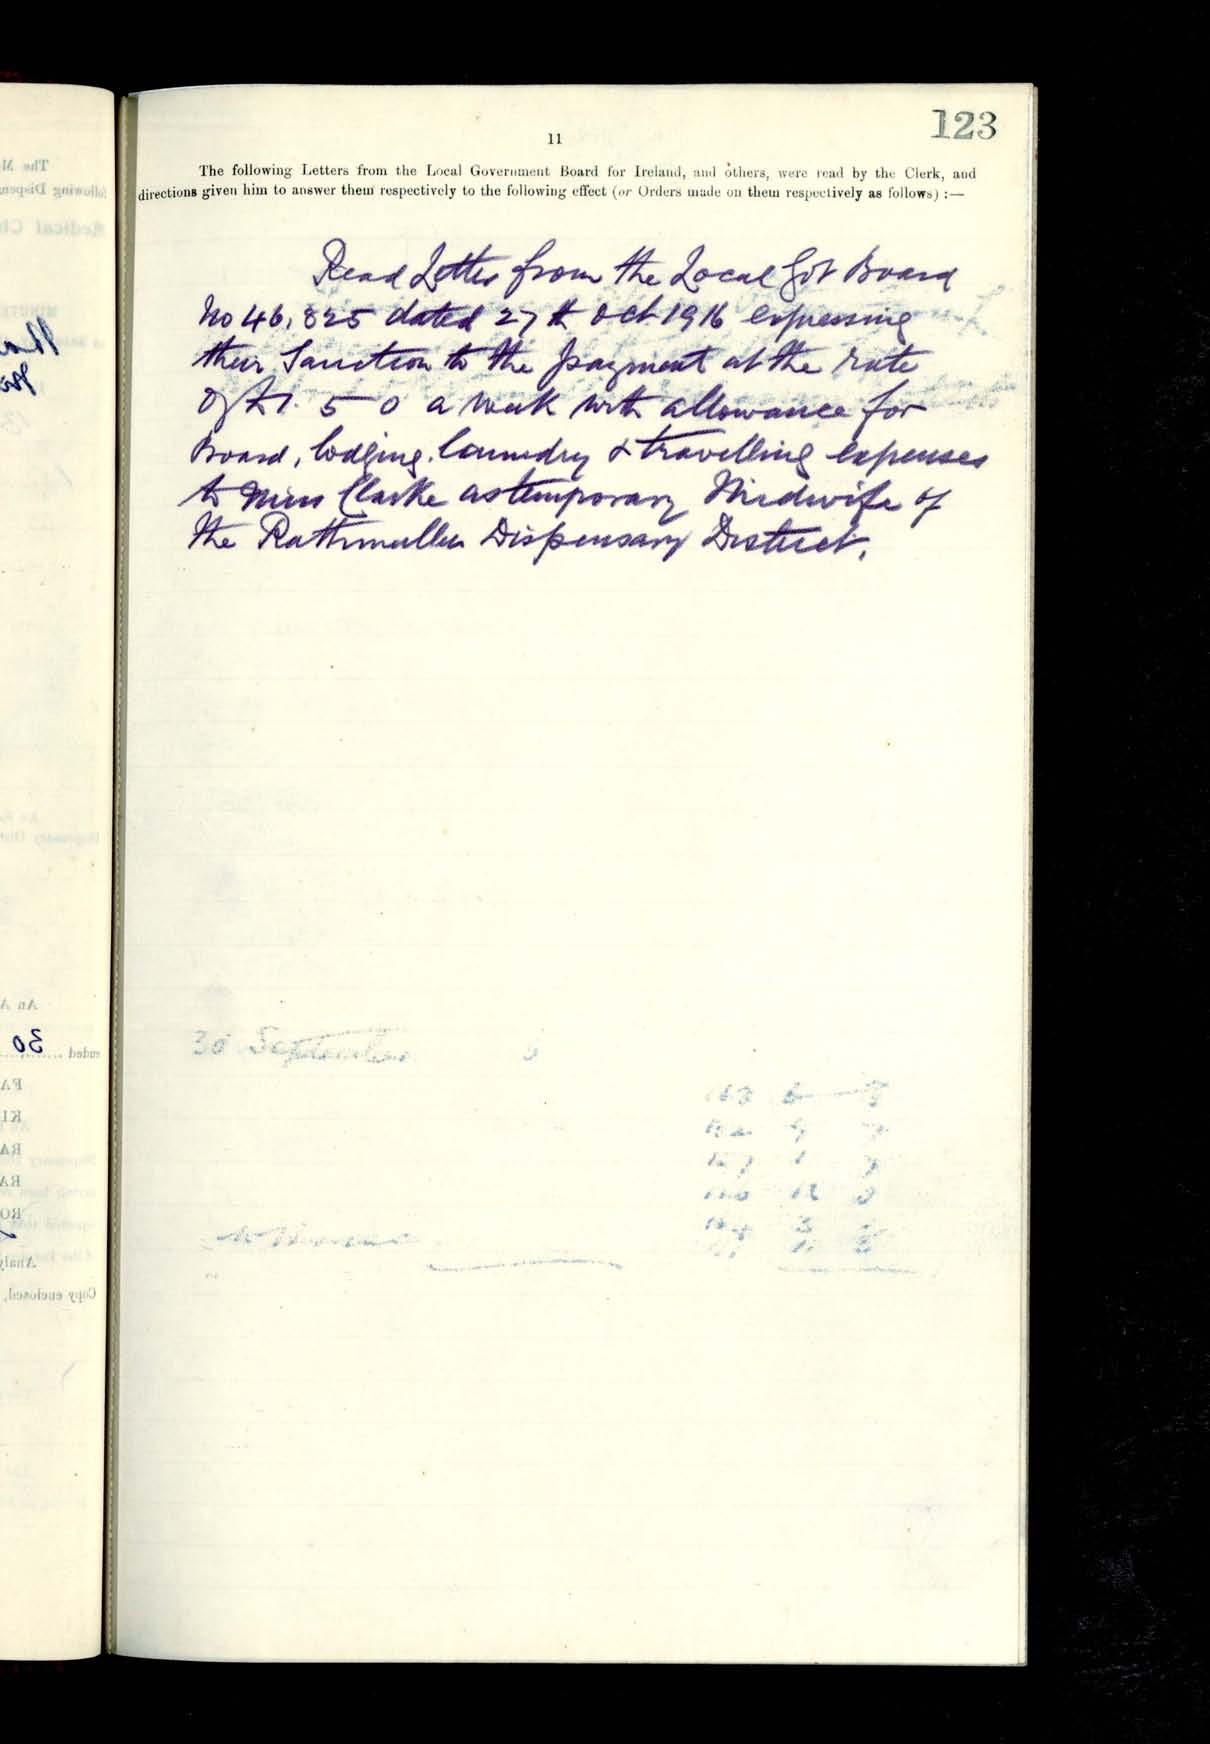 123
11
The following Letters from the Local Government Board for Ireland, and others, were read by the Clerk, and
directions given him to answer them respectively to the following effect (or Orders made on them respectively as follows) :—
Read Letter from the Local Govt Board
No 46,825 dated 27th Oct. 1916 expressing
their Sanction to the payment at the rate
of £1. 5 0 a week with allowance for
Board, lodging, laundry & travelling expenses
to Miss Clarke as temporary Midwife of
the Rathmullen Dispensary District.
30 September